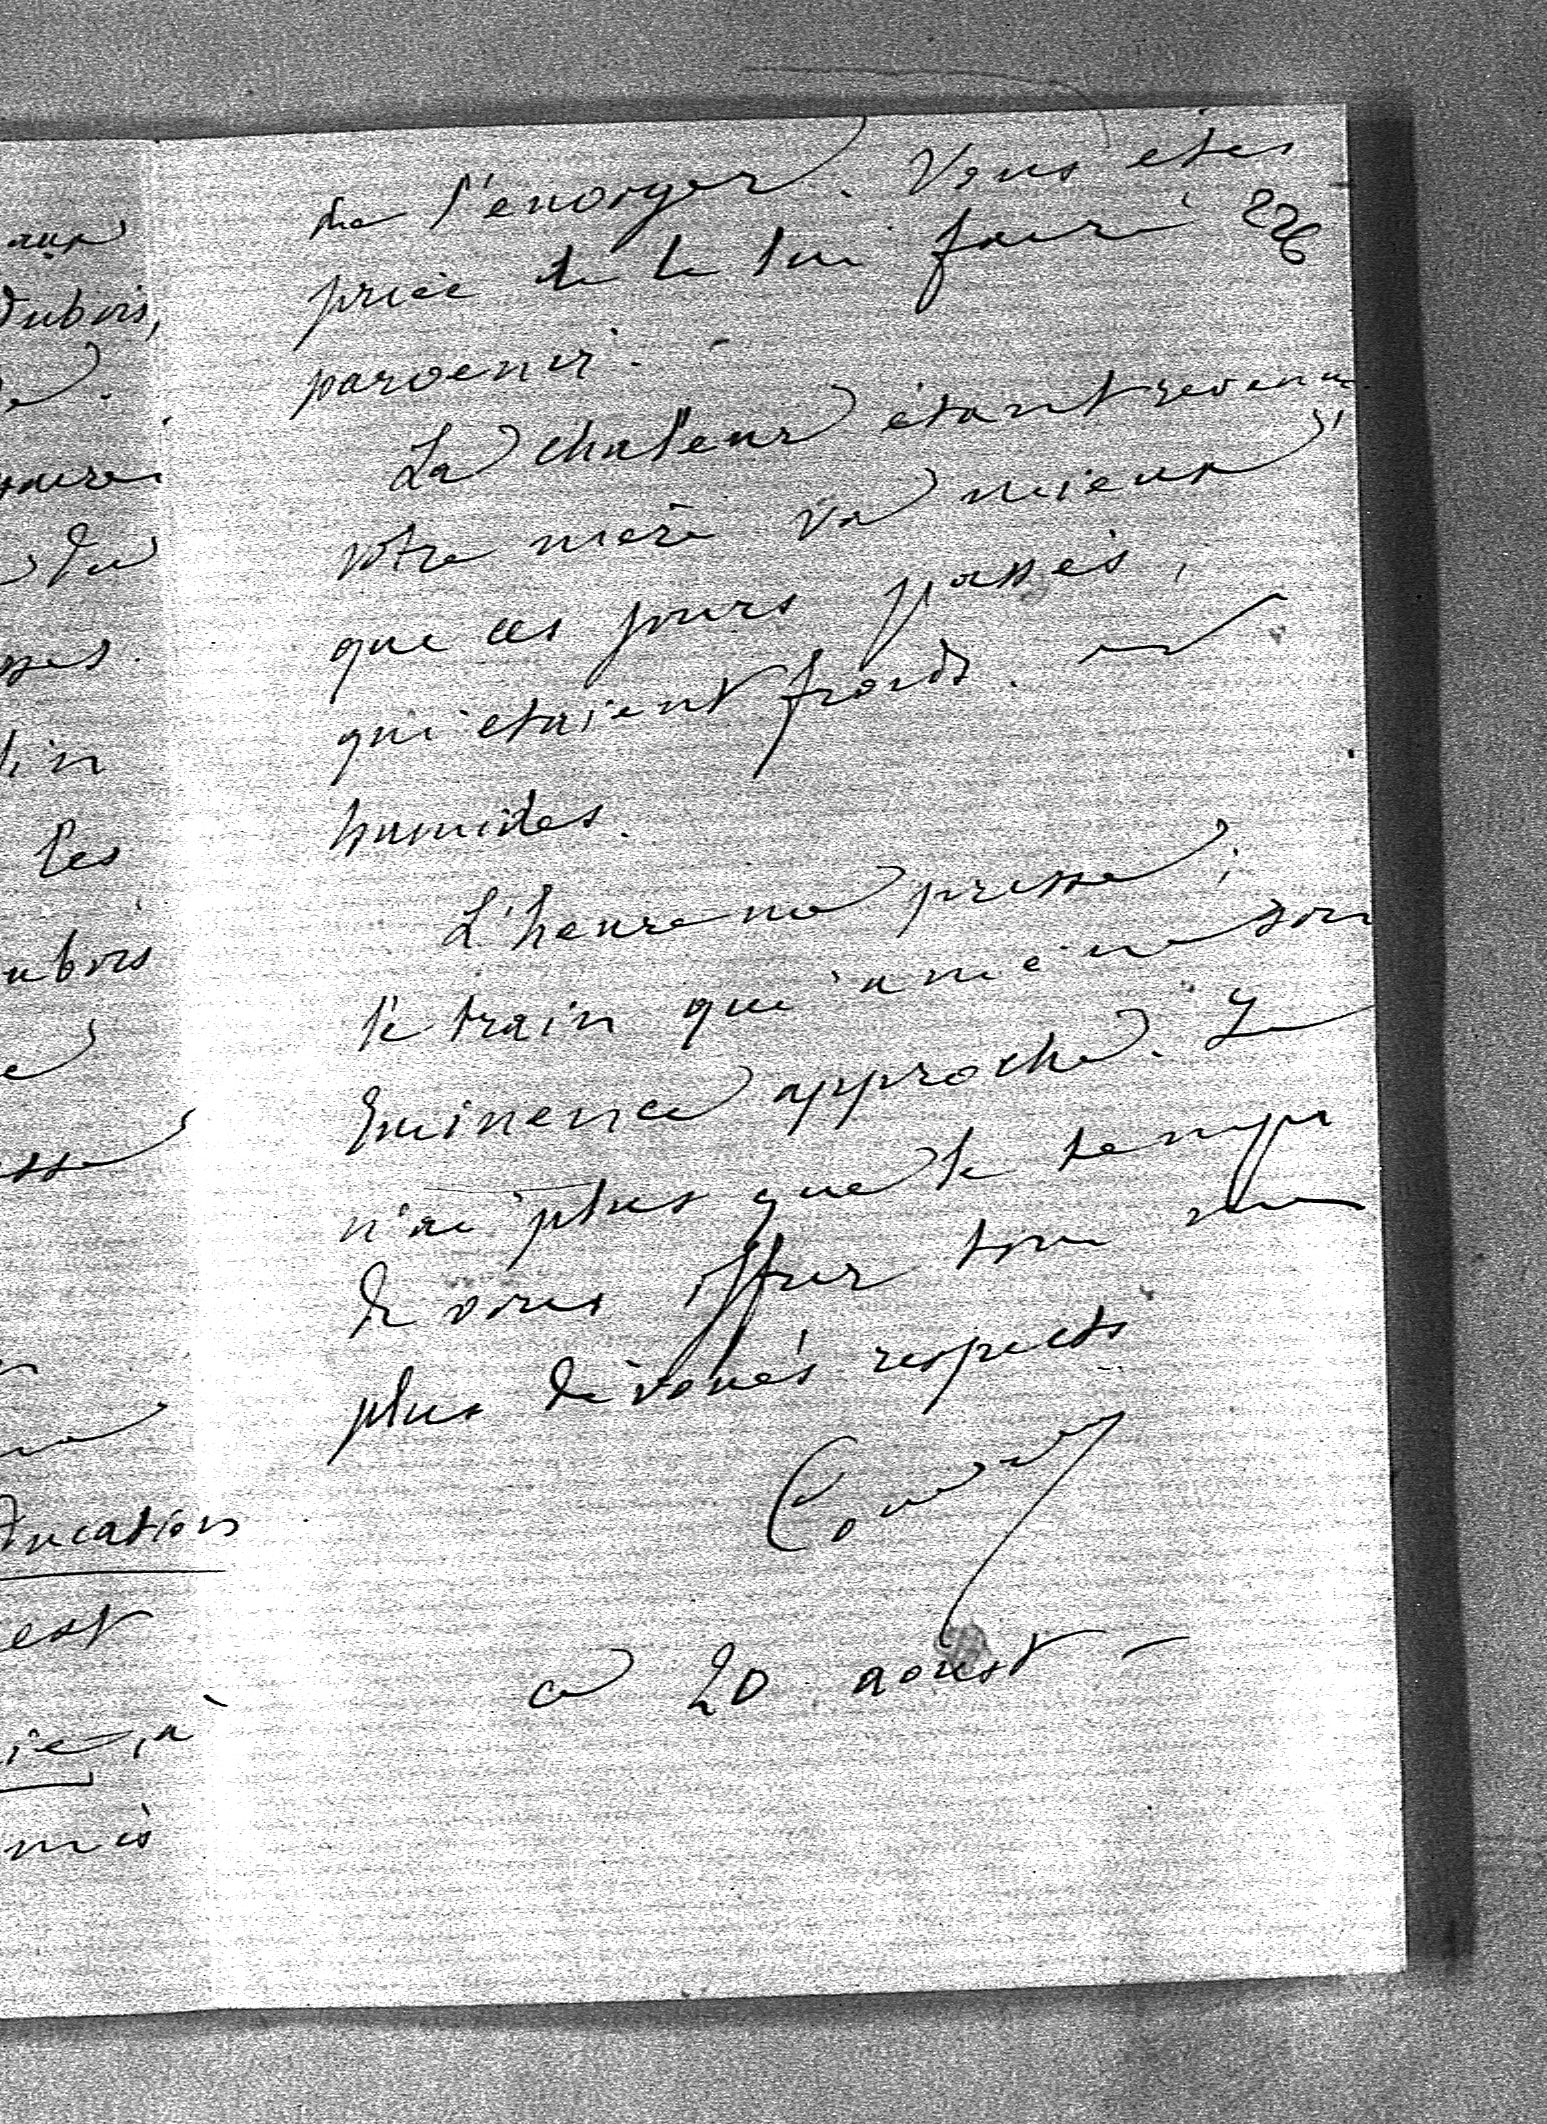 aux
Dubois,
du
les
ubois
ducation
est
à
mis
de l'envoyer. Vous êtes
226
priée de le lui faire
parvenir. -
La chaleur étant revenue
votre mère va mieux
que ces jours passés,
qui etaient froids et
humides.
L'heure me presse;
le train qui amène son
Eminence approche. Je
n'ai plus que le temps
de vous offrir tous mes
plus dévoués respects
ce 20 aoust -